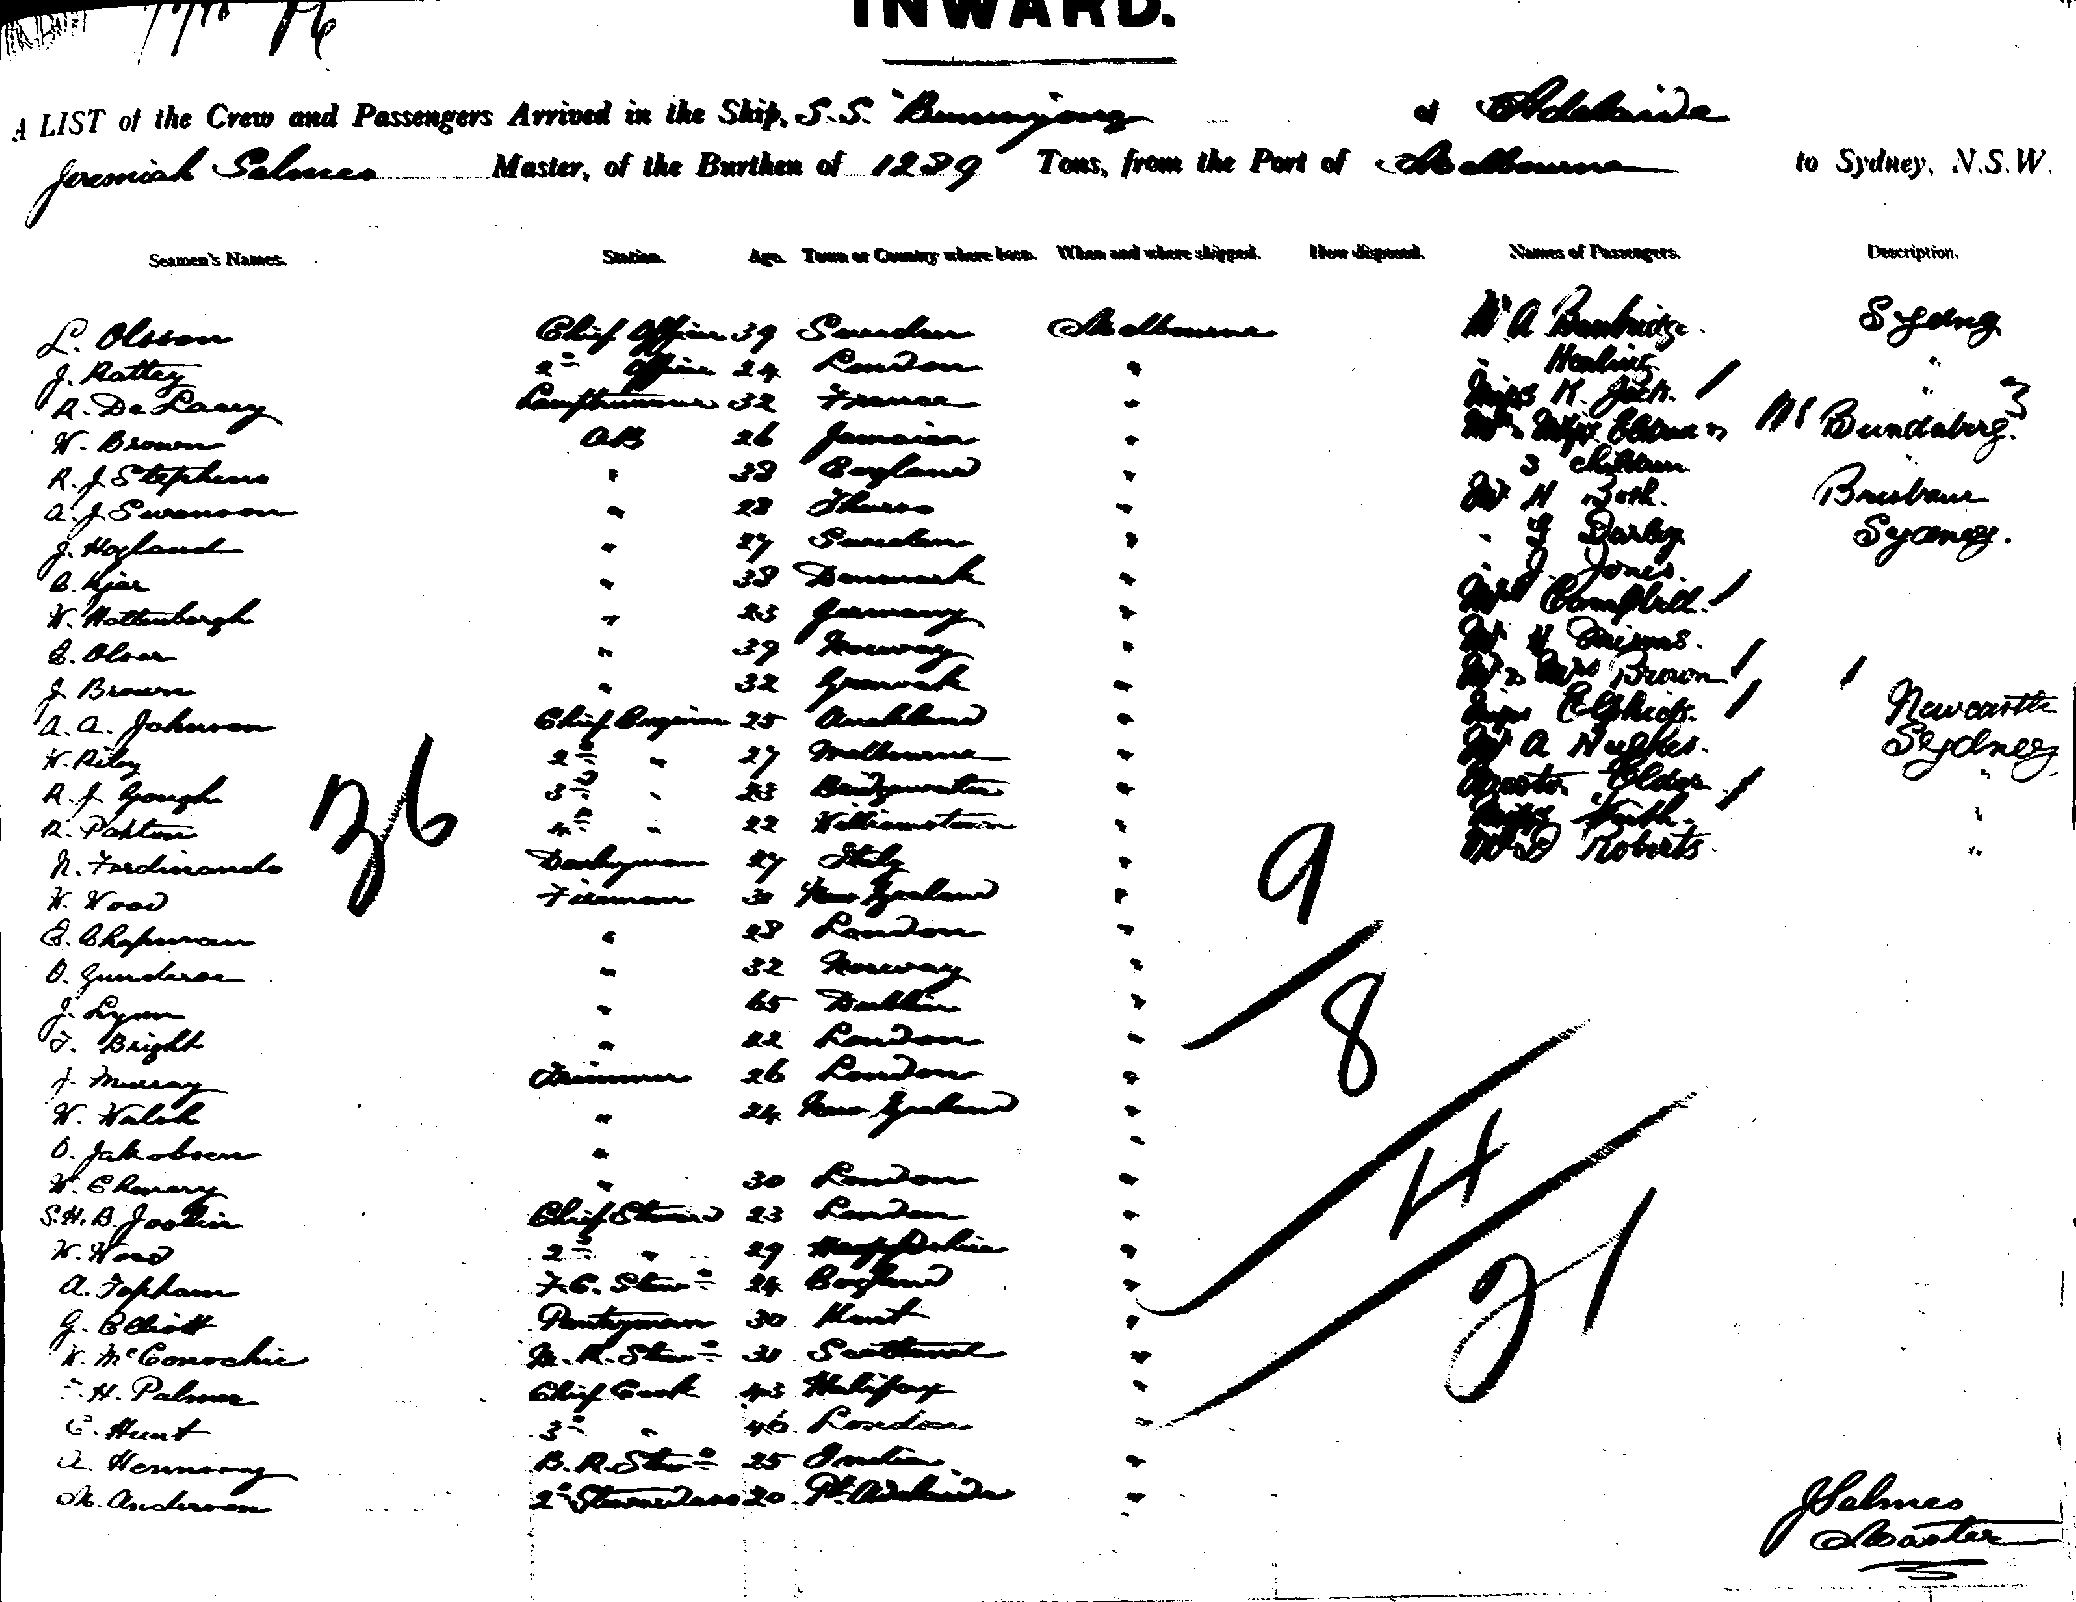 INWARD.
A LIST of the Crew and Passengers Arrived in the Ship, S.S. Buninyong of Adelaide
Jeremiah Selmes Master, of the Burthen of 1289 Tons, from the Port of Melbourne to Sydney, N.S.W.
Seamen's Names. Station. Age. Town or Country where born. When and where shipped. How disposed. Names of Passengers. Description.
L. Olsson Chief Officer 39 Sweden Melbourne Mr A Sydney
J. Rattey 2nd Officer 24 London " "
A. De Lacey Lamptrimmer 32 France " Miss K. Jack. "
W. Brown AB 26 Jamaica " Bundaberg.
R. J. Stephens " 33 England " 3 children "
A. J. Swanson " 28 Thurso " Mr H Both. Brisbane
J. Hogland " 27 Sweden " " Darby Sydney.
C. Kjar " 38 Denmark " " J. Jones.
W. Rottenburgh " 23 Germany " Mrs Campbell.
C. Olsen " 39 Norway " Mr H
J. Brown " 32 Greenock " Mr & Mrs Brown
A. A. Johnson Chief Engineer 25 Auckland " Miss Elphick. Newcastle
W. Riley 2nd " 27 Melbourne " Mr A Hughes. Sydney
R. J. Gough 3rd " 23 Bridgewater " Master Elder "
R. Paxton 4th " 22 Williamstown " Miss "
N. Ferdinando Donkeyman 27 Italy " Mr D Roberts "
W. Wood Fireman 31 New Zealand "
C. Chapman " 28 London "
O. Gunderson " 32 Norway "
J. Lynn " 65 Dublin "
F. Bright " 22 London "
J. Murray Trimmer 26 London "
W. Walsh " 24 New Zealand "
O. Jakobsen " "
W. " 30 London "
S. H. B. Joslin Chief Steward 23 London "
W. Wood 2nd " 29 Hampshire "
A. Topham F.C. Stewd 24 England "
G. Elliott Pantryman 30 Kent "
W. McConochie M. R. Stewd 31 Scotland "
H. Palmer Chief Cook 43 Halifax "
C. Hunt 3rd " 46 London "
Hennessy B. R. Stewd 25 India "
M. Anderson 2nd Stewardess 30 Pt. Adelaide "
36
9
8
4
21
J Selmes
Master